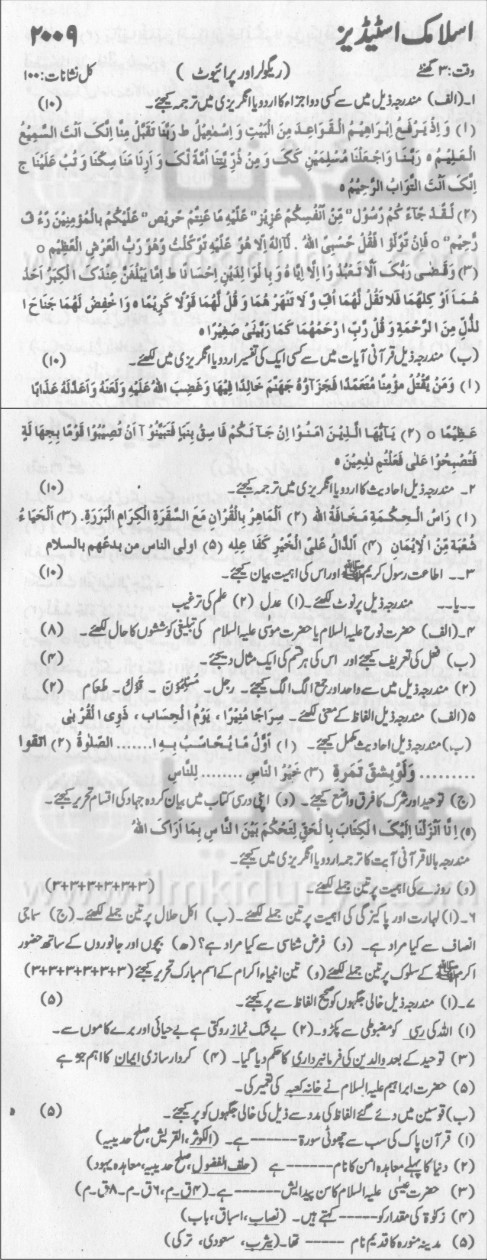 اسلامک اسٹیڈیز ۲۰۰۹
وقت: ۳ گھنٹے (ریگولر اور پرائیوٹ) کل نشانات: ۱۰۰
۱۔(الف) مندرجہ ذیل میں سے کسی دو اجزاء کا اردو یا انگریزی میں ترجمہ کیجئے۔ (۱۰)
(۱) وَاِذ یَرفَعُ اِبرَاھِیمُ القَوَاعِدَ مِنَ البَیتِ وَ اِسمٰعِیلُ ط رَبَّنَا تَقَبَّل مِنَّا اِنَّکَ اَنتَ السَّمِیعُ
العَلِیمُ ہ رَبَّنَا وَاجعَلنَا مُسلِمَینِ لَکَ وَمِن ذُرِّیَّتِنَا اُمَّةً لَّکَ وَاَرِنَا مَنَاسِکَنَا وَتُب عَلَینَا ج
اِنَّکَ اَنتَ التَّوَّابُ الرَّحِیمُ ہ
(۲) لَقَد جَآءَ کُم رَسُول’‘ مِّن اَنفُسِکُم عَزِیز’‘ عَلَیہِ مَا عَنِتُّم حَرِیص’‘ عَلَیکُم بِالمُؤمِنِینَ رَءُ فٌ
رَّحِیم’‘ ہ فَاِن تَوَلَّوا فَقُل حَسبِیَ اللہُ لَآاِلٰہَ اِلَّا ھُوَ عَلَیہِ تَوَکَّلتُ وَھُوَ رَبُّ العَرشِ العَظِیمِ ہ
(۳) وَقَضٰی رَبُّکَ اَلَّا تَعبُدُ وا اِلَّا اِیَّاہُ وَ بِالوَالِدَینِ اِحسَانًا ط اِمَّا یَبلُغَنَّ عِندَکَ الکِبَرَ اَحَدُ
ھُمَا اَو کِلٰھُمَا فَلَا تَقُل لَّھُمَا اُفٍّ وَّلَا تَنھَر ھُمَا وَ قُل لَّھُمَا قَولًا کَرِیمًا ہ وَاخفِض لَھُمَا جَنَاحَ ا
لذُّلِّ مِنَ الرَّحمَةِ وَ قُل رَّبِّ ارحَمھُمَا کَمَا رَبَّیٰنِی صَغِیرًا ہ
(ب) مندرجہ ذیل قرآنی آیات میں سے کسی ایک کی تفسیر اردو یا انگریزی میں لکھئے (۱۰)
(۱) وَمَن یَّقتُل مُؤمِنًا مُّتَعَمِّدًا فَجَزَآؤُہ جَھَنَّمُ خَالِدًا فِیھَا وَ غَضِبَ اللہُ عَلَیہِ وَلَعَنَہُ وَاَعَدَّلَہُ عَذَابًا
عَظِیمًا ہ (۲) یٰاَیُّھَا الَّذِینَ اٰمَنُوا اِن جَآ ئَکُم فَاسِقٌ بِنَبَاٍ فَتَبَیَّنُوآ اَن تُصِیبُوا قَومًا بِجَھَالَةٍ
فَتُصبِحُوا عَلٰی فَعَلتُم نٰدِمِینَ ہ
۲۔ مندرجہ ذیل احادیث کا اردو یا انگریزی میں ترجمہ کیجئے۔ (۱۰)
(۱) رَاسُ الحِکمَةِ مَخَافَةُ اللہِ (۲) اَلمَاھِرُ بِالقُراٰنِ مَعَ السَّفَرَةِ الکِرَامِ البَرَرَةِ۔ (۳) اَلحَیَاءُ
شُعبَةٌ مِّنَ الاِیمَانِ (۴) اَلدَّالُ عَلَی الخَیرِ کَفَا عِلِہ (۵) اولی الناس من بدءھم بالسلام
۳۔۔ اطاعت رسول کریم ﷺ اور اس کی اہمیت بیان کیجئے۔ (۱۰)
۔۔یا۔۔ مندرجہ ذیل پر نوٹ لکھئے۔ (۱) عدل (۲) علم کی ترغیب
۴۔(الف) حضرت نوح علیہ السلام یا حضرت موسیٰ علیہ السلام کی تبلیغی کوششوں کا حال لکھئے۔ (۸)
(ب) فعل کی تعریف کیجئے اور اس کی ہر قسم کی ایک مثال دیجئے۔
(۲) مندرجہ ذیل میں سے واحد اور جمع الگ الگ کیجئے۔ رجل۔ مُسلِمُونَ۔ قَولٌ۔ طَعَام (۲)
۵(الف) مندرجہ ذیل الفاظ کے معنی لکھئے۔ سِرَاجًا مُّنِیرًا، یَومُ الحِسَاب، ذَوِی القُربٰی
(ب) مندرجہ ذیل احادیث مکمل کیجئے۔ (۱) اَوَّلُ مَا یُحَاسَبُ بِہِ ا....... الصَّلٰوةُ (۲) اتقوا
......... وَلَو بِشِقِّ تَمرَةٍ (۳) خَیرُ النَّاسِ ......... لِلنَّاسِ
(ج) توحید اور شرک کا فرق واضح کیجئے۔ (د) اپنی درسی کتاب میں بیان کردہ جہاد کی اقسام تحریر کیجئے۔
(ہ) اِنَّا اَنزَلنَا اِلَیکَ الکِتَابَ بِالحَقِّ لِتَحکُمَ بَینَ النَّاسِ بِمَا اَرَاکَ اللہُ
مندرجہ بالا قرآنی آیت کا ترجمہ اردو یا انگریزی میں کیجئے۔
(و) روزے کی اہمیت پر تین جملے لکھئے۔ (۳+۳+۳+۳+۳+۳)
۶۔(۱) طہارت اور پاکیزگی کی اہمیت پر تین جملے لکھئے۔ (ب) اکل حلال پر تین جملے لکھئے۔ (ج) سماجی
انصاف سے کیا مراد ہے۔ (د) فرض شناسی سے کیا مراد ہے؟ (ھ) بچوں اور جانوروں کے ساتھ حضور
اکرم ﷺ کے سلوک پر تین جملے لکھئے (و) تین انبیاء اکرام کے اسم مبارک تحریر کیجئے (۳+۳+۳+۳+۳+۳)
۷۔(۱) مندرجہ ذیل خالی جگہوں کو صحیح الفاظ سے پر کیجئے۔ (۵)
(۱) اللہ کی رسی کو مضبوطی سے پکڑو۔ (۲) بے شک نماز روکتی ہے بے حیائی اور برے کاموں سے۔
(۳) توحید کے بعد والدین کی فرمانبرداری کا حکم دیا گیا۔ (۴) کردار سازی ایمان کا اہم جز ہے
(۵) حضرت ابراہیم علیہ السلام نے خانہ کعبہ کی تعمیر کی۔
(ب) قوسین میں دئے گئے الفاظ کی مدد سے ذیل کی خالی جگہوں کو پر کیجئے۔ (۵)
(۱) قرآن پاک کی سب سے چھوٹی سورة ------ ہے۔ (الکوثر، القریش، صلح حدیبیہ)
(۲) دنیا کا پہلے معاہدہ امن کا نام ------ ہے (حلف الفضول، صلح حدیبیہ، معاہدہ یہود)
(۳) حضرت عیسیٰ علیہ السلام کا سن پیدائش ------ ہے۔ (۴ق۔م، ۶ق۔م۔ ۸ق۔م)
(۴) زکوٰة کی مقدار کو ----- کہتے ہیں۔ (نصاب، اسباق، باب)
(۵) مدینہ منورہ کا قدیم نام ----- تھا۔ (یثرب، سعودی، ترکی)
www.ilmkidunya.com